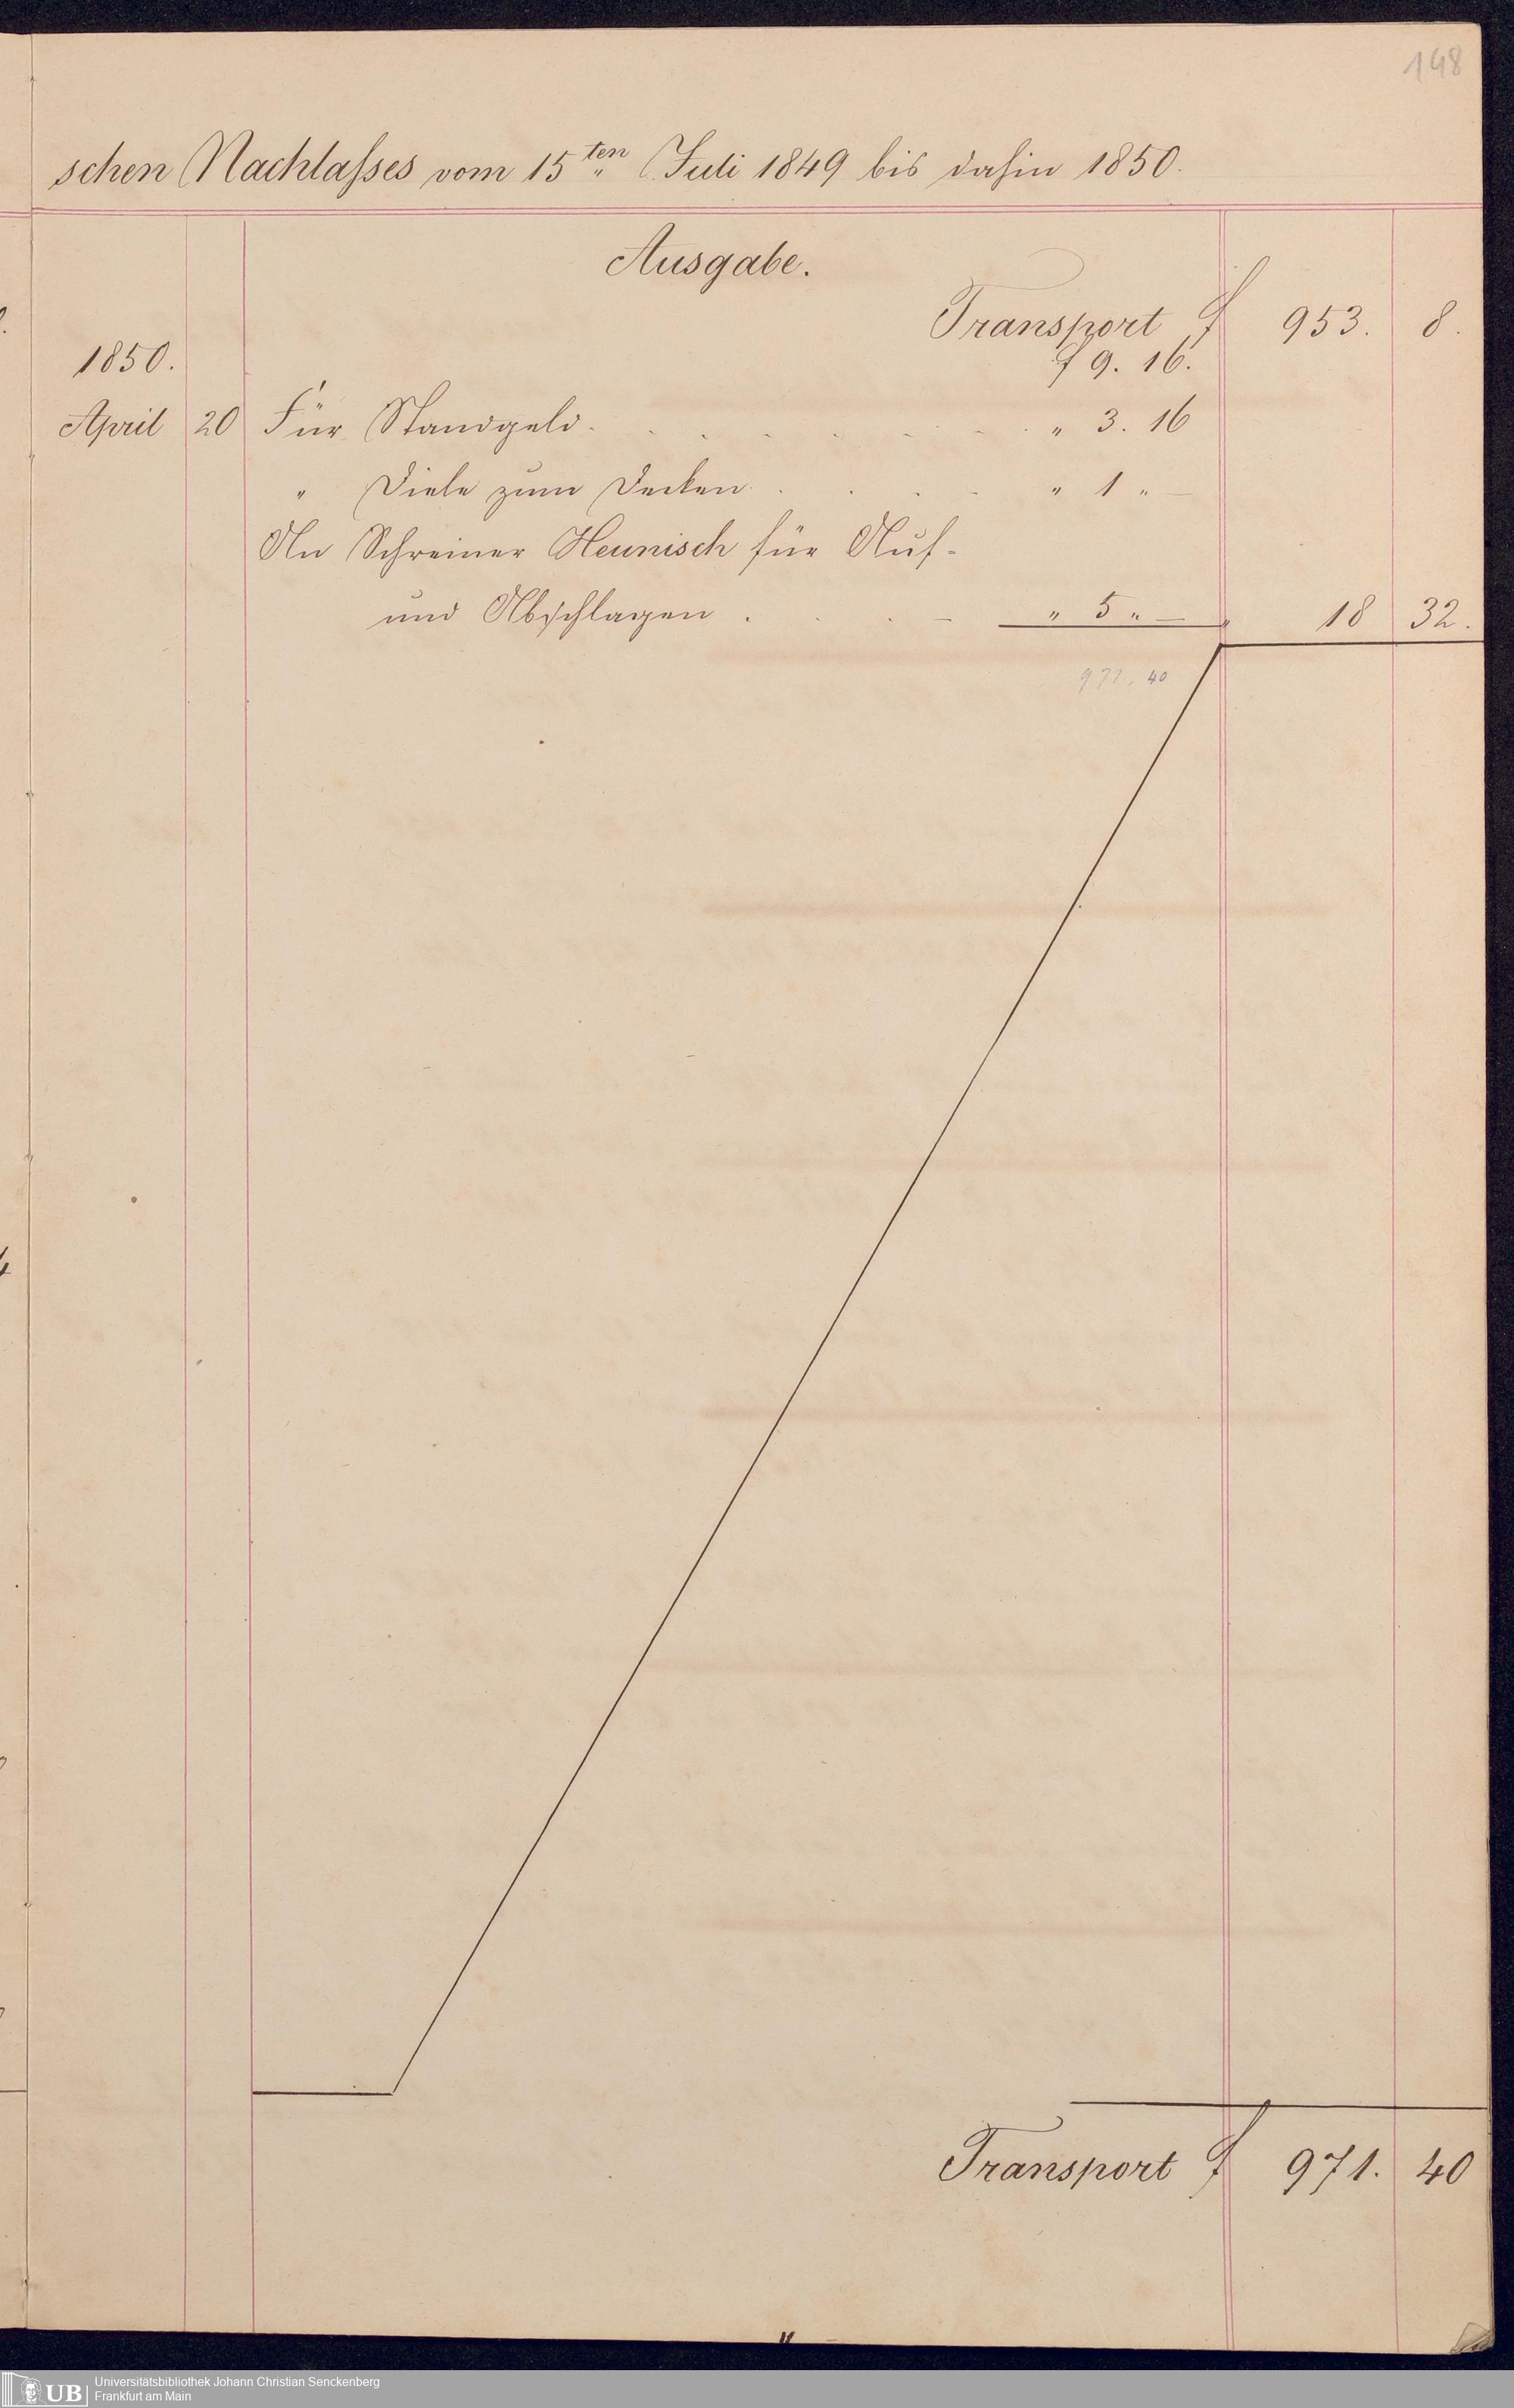 148
schen Nachlaſses vom 15ten Juli 1849 bis dahin 1850.
Ausgabe.
Transport f 953. 8.
1850. f 9. 16.
April 20 Für Standgeld . . . . . . " 3. 16
" Diele zum Decken . . . . " 1 " —
An Schreiner Heunisch für Auf-
und Abschlagen . . . — " 5 " — " 18 32.
971. 40
Transport f 971. 40
UB Universitätsbibliothek Johann Christian Senckenberg
Frankfurt am Main